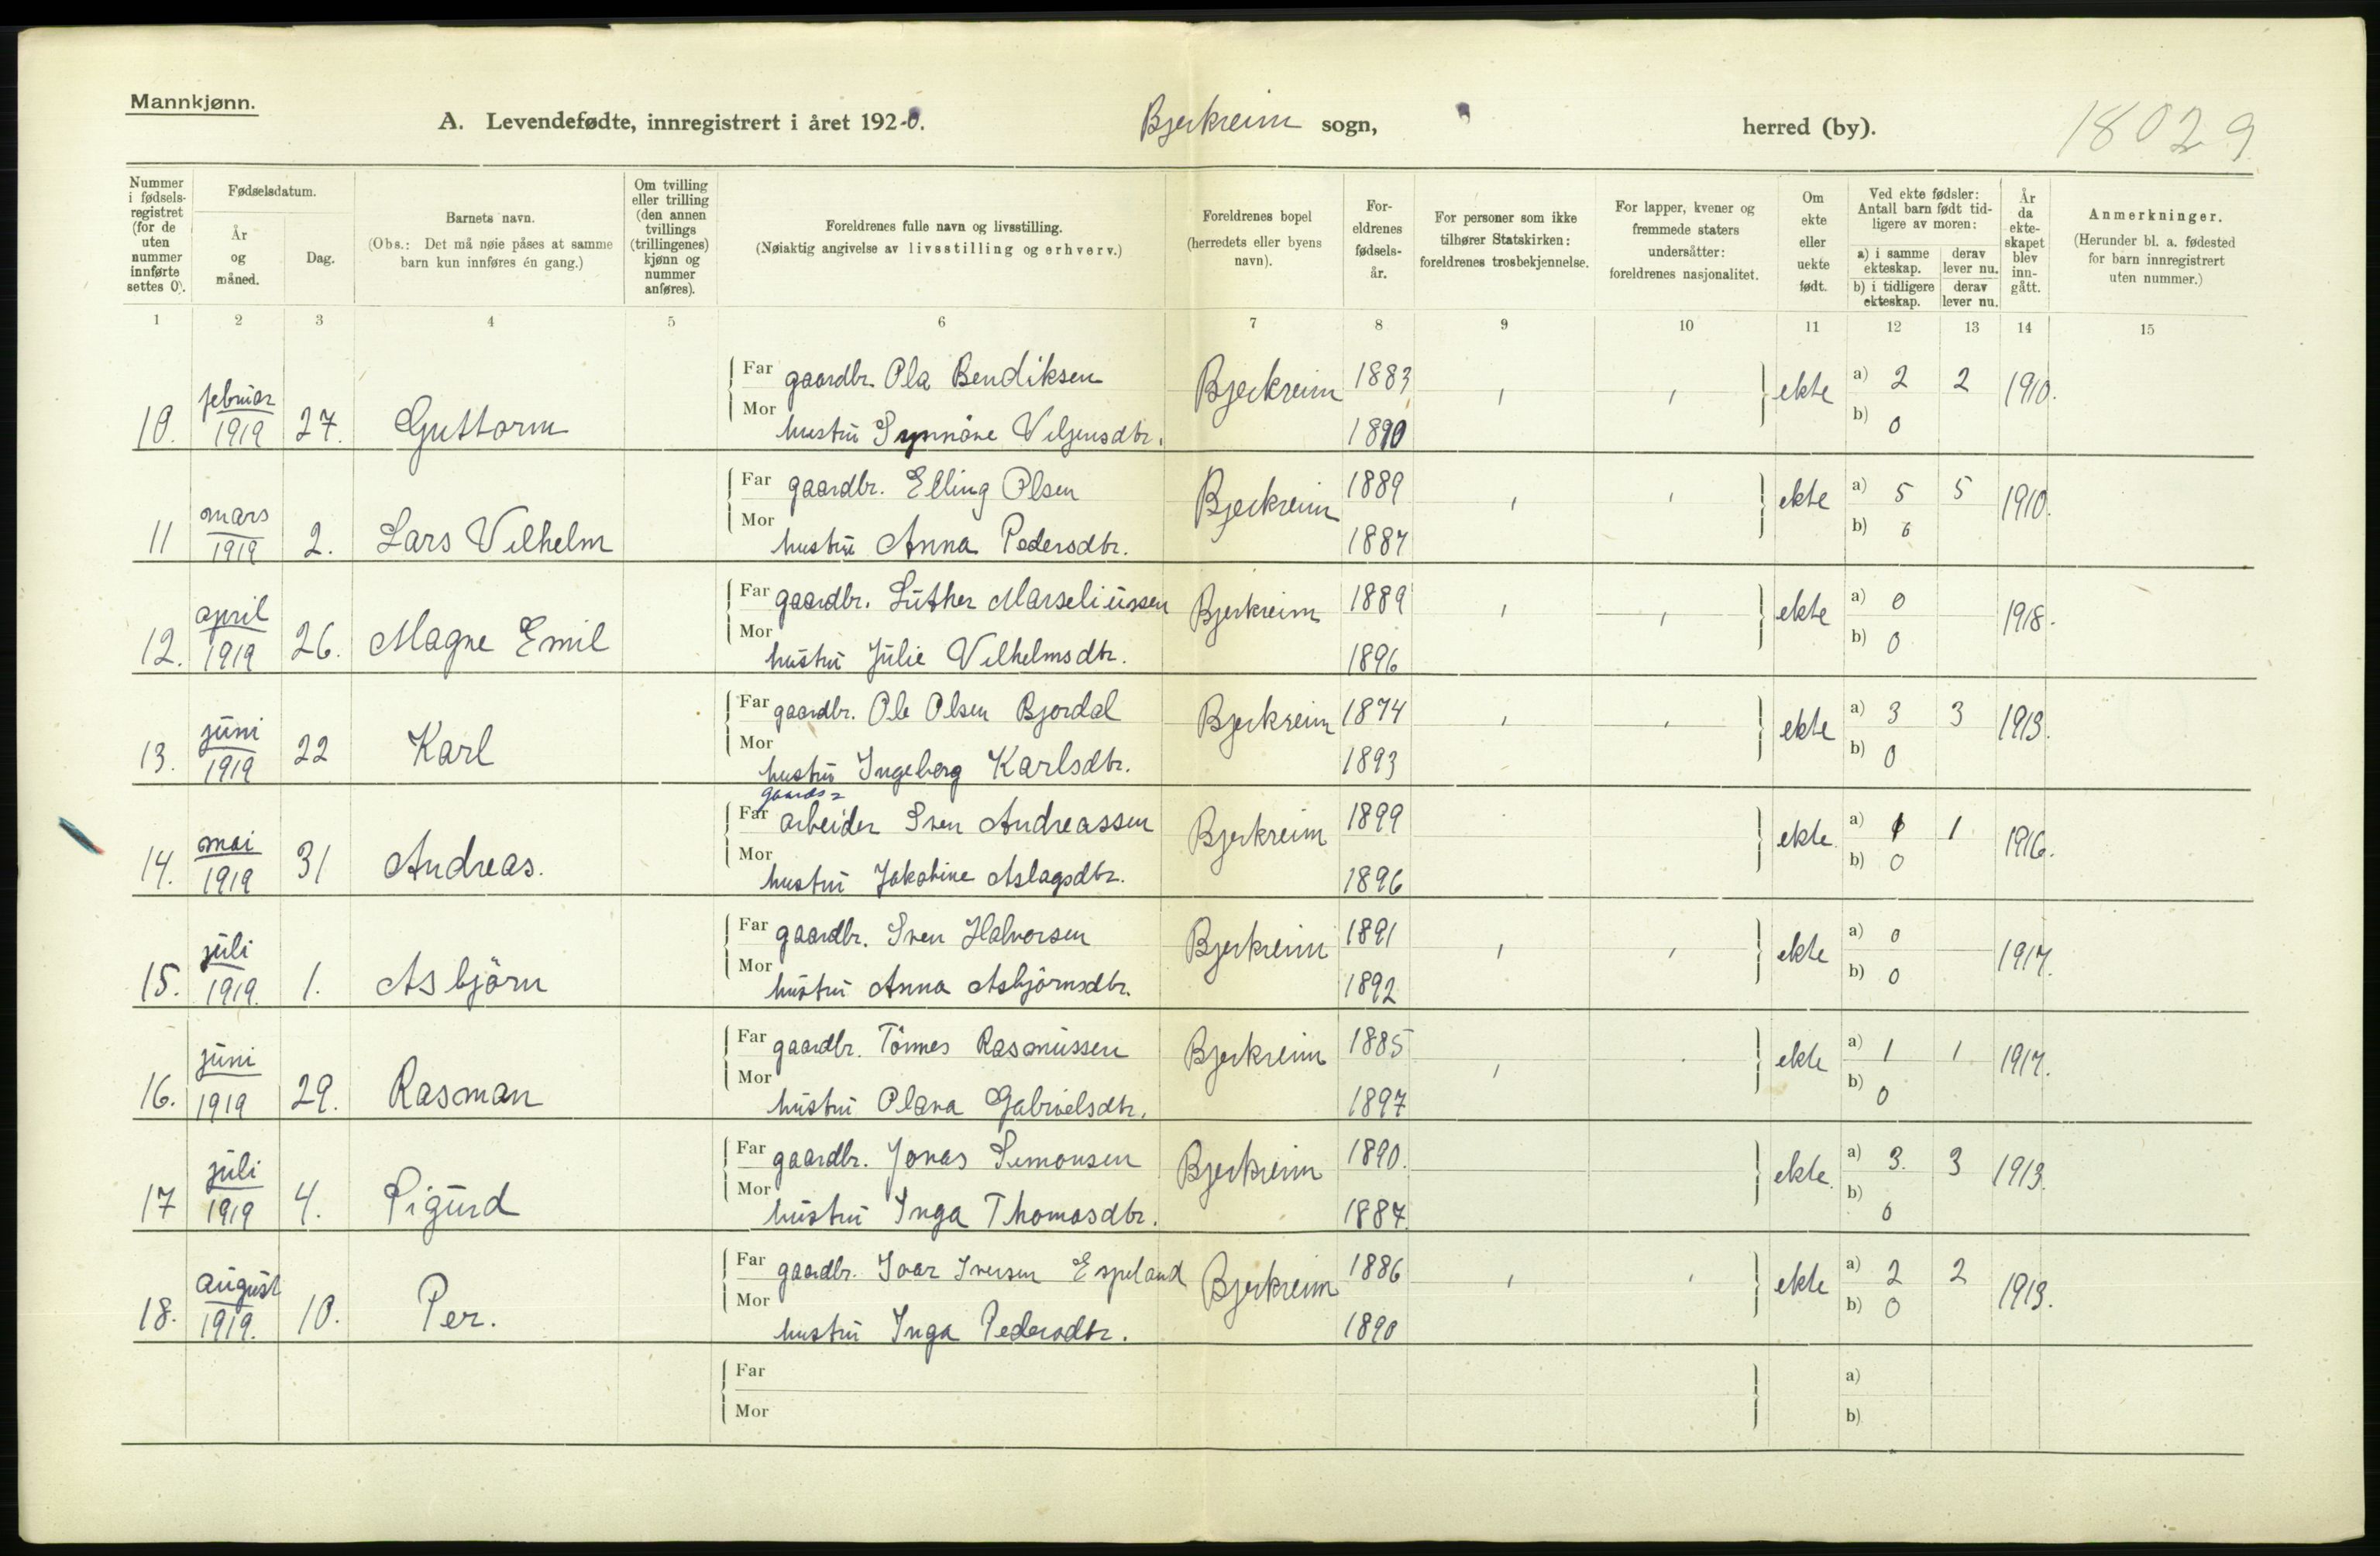 Mannkjønn.
A. Levendefødte, innregistrert i året 1920. Bjerkreim sogn, herred (by). 18029
Nummer i fødselsregistret (for de uten nummer innførte settes 0).
Fødselsdatum.
År og måned.
Dag.
Barnets navn.
(Obs.: Det må nøie påses at samme barn kun innføres én gang.)
Om tvilling eller trilling (den annen tvillings (trillingenes) kjønn og nummer anføres).
Foreldrenes fulle navn og livsstilling.
(Nøiaktig angivelse av livsstilling og erhverv.)
Foreldrenes bopel (herredets eller byens navn).
Foreldrenes fødselsår.
For personer som ikke tilhører Statskirken: foreldrenes trosbekjennelse.
For lapper, kvener og fremmede staters undersåtter: foreldrenes nasjonalitet.
Om ekte eller uekte født.
Ved ekte fødsler: Antall barn født tidligere av moren:
a) i samme ekteskap. derav lever nu.
b) i tidligere ekteskap. derav lever nu.
År da ekteskapet blev inngått.
Anmerkninger.
(Herunder bl. a. fødested for barn innregistrert uten nummer.)
1 2 3 4 5 6 7 8 9 10 11 12 13 14 15
10. februar 1919 27. Guttorm Far gaardbr. Ola Bendiksen Bjerkreim 1883 ekte a) 2 2 1910.
Mor hustru Synnöve Veljensdtr. 1890 b) 0
11 mars 1919 2. Lars Vilhelm Far gaardbr. Elling Olsen Bjerkreim 1889 ekte a) 5 5 1910.
Mor hustru Anna Pedersdtr. 1887 b) 0
12. april 1919 26. Magne Emil Far gaardbr. Luther Marseliussen Bjerkreim 1889 ekte a) 0 1918.
Mor hustru Julie Vilhelmsdtr. 1896 b) 0
13. juni 1919 22 Karl Far gaardbr. Ole Olsen Bjordal Bjerkreim 1874 ekte a) 3 3 1913.
Mor hustru Ingeborg Karlsdtr. 1893 b) 0
gaards=
14. mai 1919 31 Andreas. Far arbeider Sven Andreassen Bjerkreim 1899 ekte. a) 1 1 1916.
Mor hustru Jakobine Aslagsdtr. 1896 b) 0
15. juli 1919. 1. Asbjörn Far gaardbr. Sven Halvorsen Bjerkreim 1891 ekte a) 0 1917.
Mor hustru Anna Asbjörnsdtr. 1892 b) 0
16. juni 1919 29. Rasman Far gaardbr. Tönnes Rasmussen Bjerkreim 1885 ekte a) 1 1 1917.
Mor hustru Olava Gabrielsdtr. 1897 b) 0
17 juli 1919 4. Sigurd Far gaardbr. Jonas Simonsen Bjerkreim 1890. ekte. a) 3. 3 1913.
Mor hustru Inga Thomasdtr. 1887. b) 0
18. august 1919. 10. Per. Far gaardbr. Ivar Iversen Espeland Bjerkreim 1886 ekte a) 2 2 1913.
Mor hustru Inga Pedersdtr. 1890 b) 0
Far a)
Mor b)